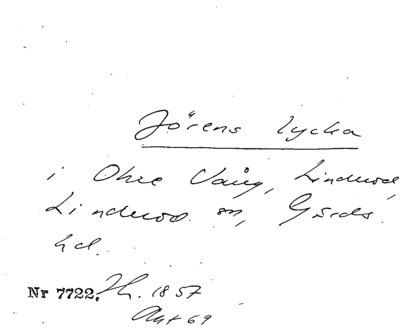 Jörens lycka
i Ohre Vång, Linderöd,
Linderöd sn, Gärds
hd.
Nr 7722. Th. 1857
Akt 69